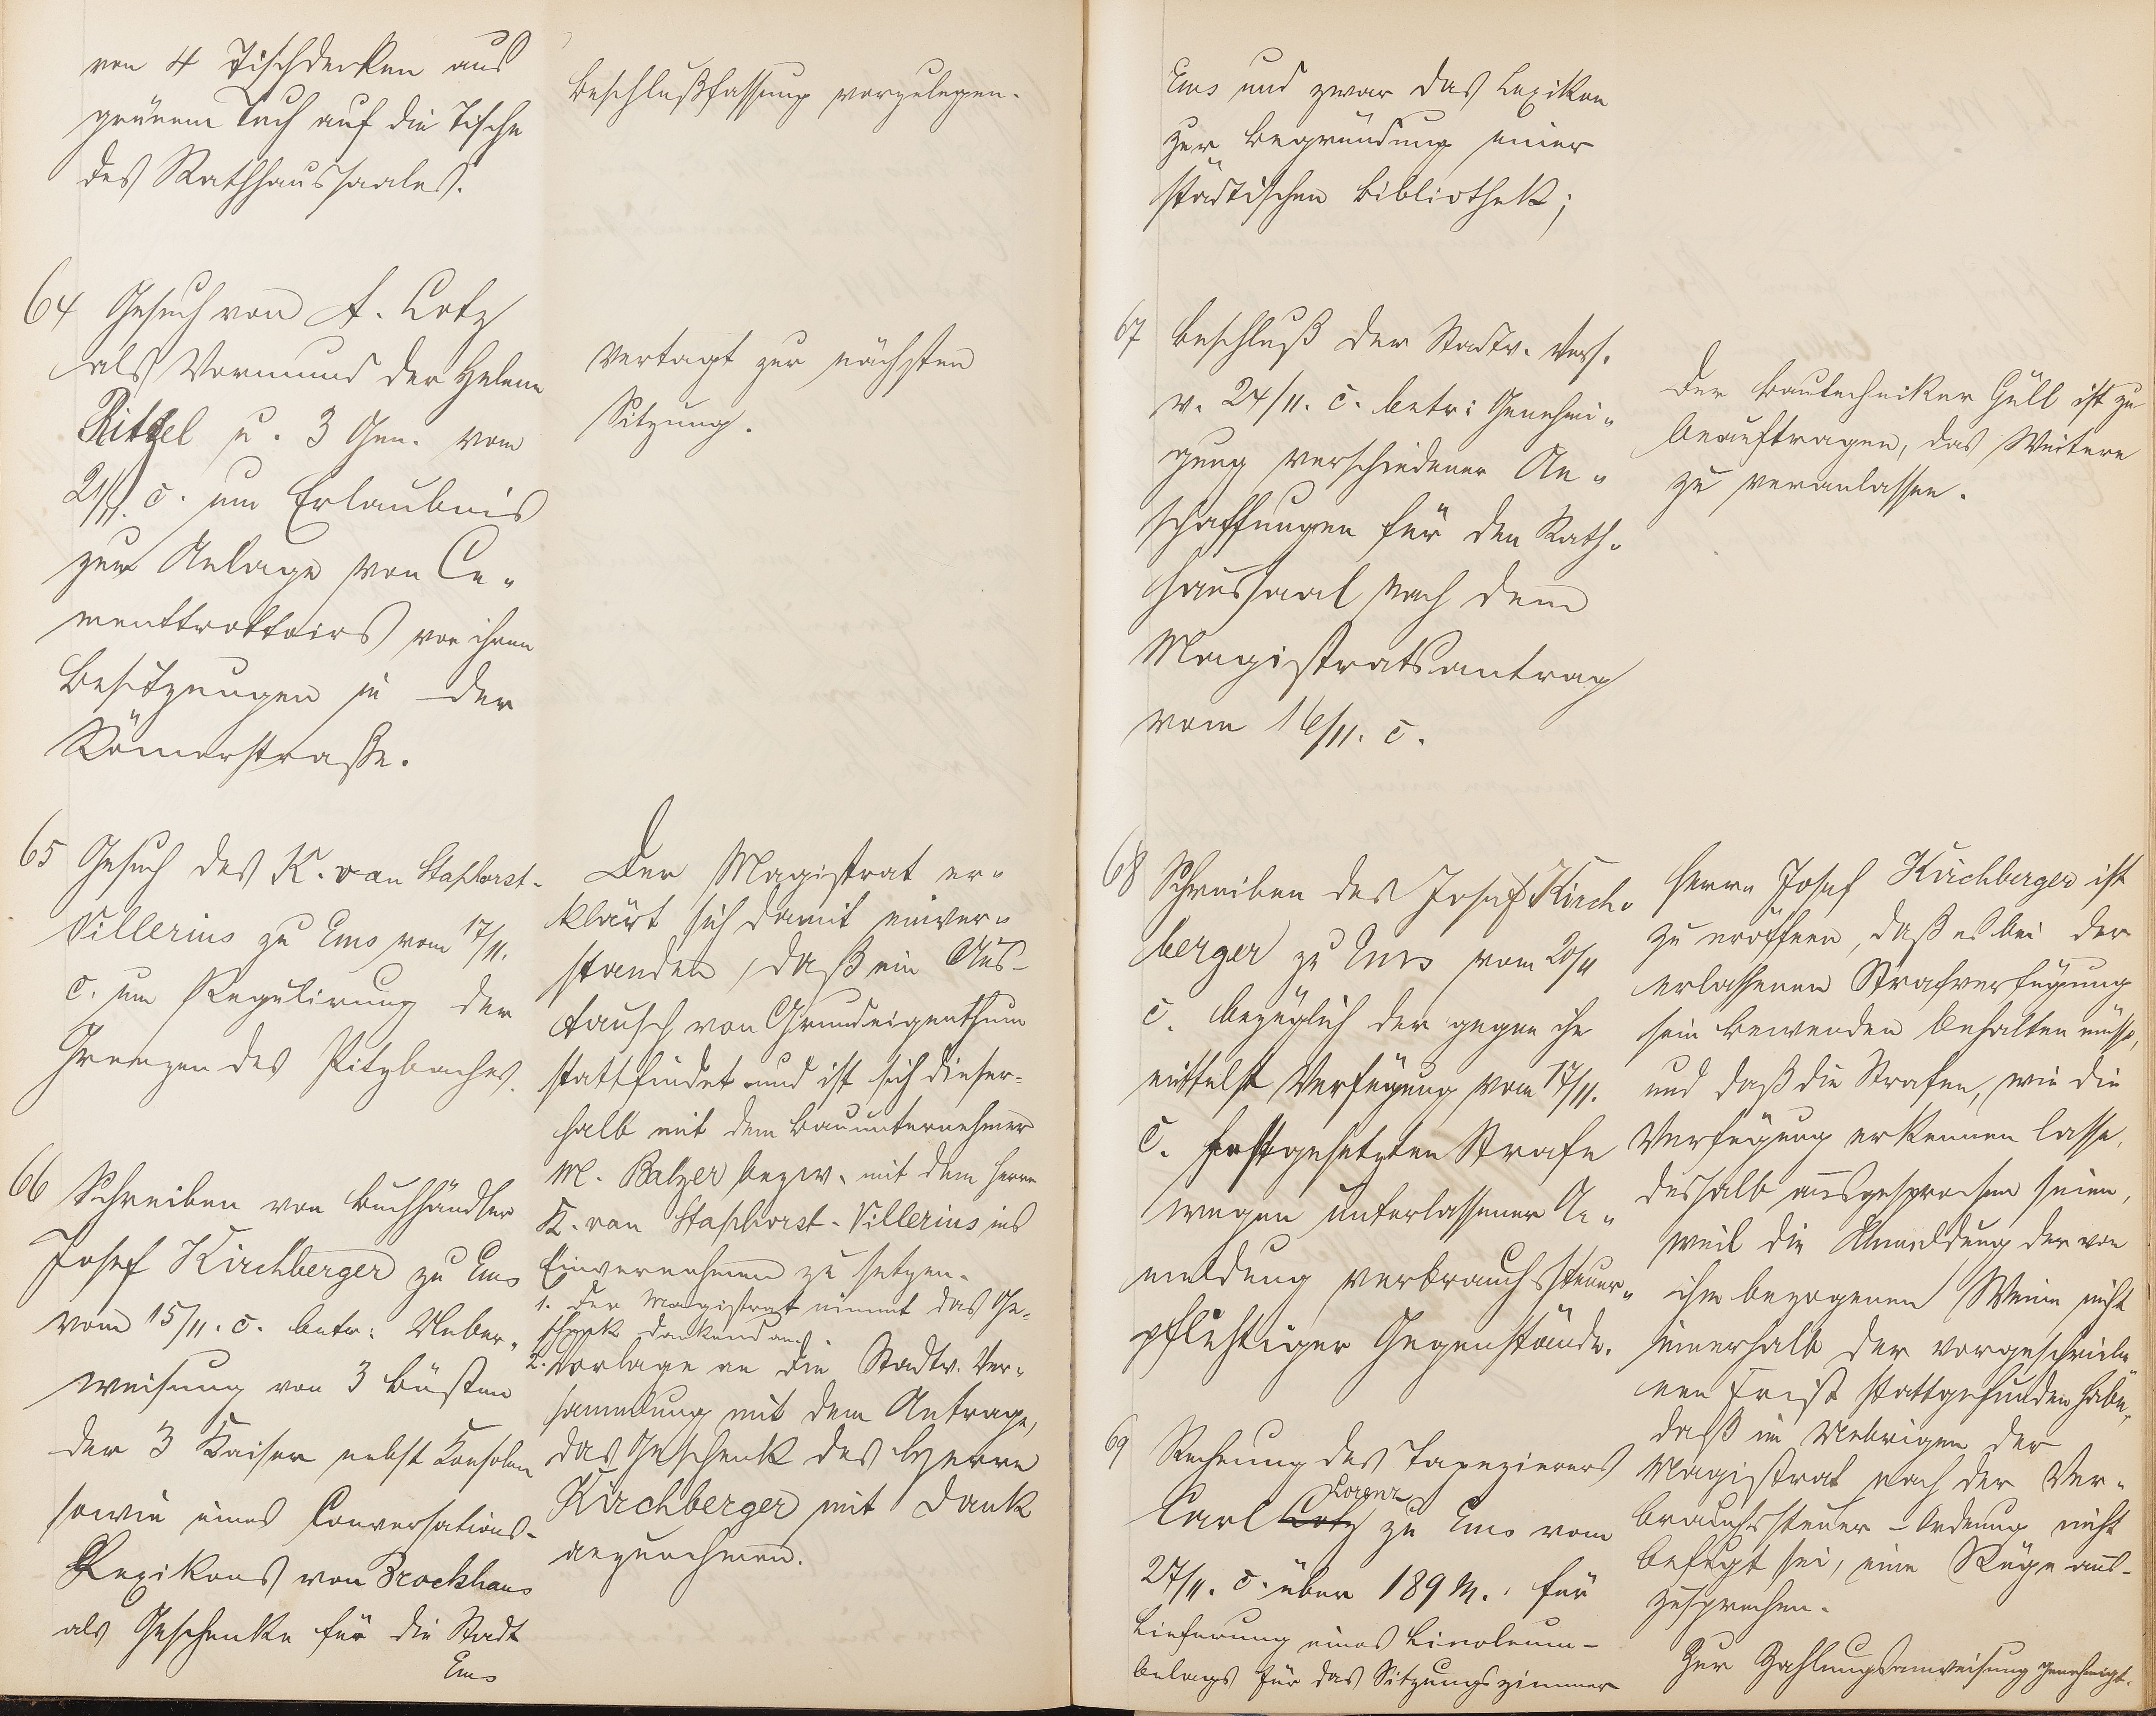 von 4 Tischdecken aus
grünem Tuch auf die Tische
des Rathhaussaales.
Beschlußfassung vorzulegen.
64 Gesuch von A. Lotz
als Vormund der Helene
Rittel u. 3 Gen. vom
21/11. c. um Erlaubnis
zur Anlage von Ce-
menttrottoirs vor ihren
Besitzungen in der
Römerstraße.
Vertagt zur nächsten
Sitzung.
65 Gesuch des K. van Staphorst-
Villerius zu Ems vom 17/11.
c. um Regulirung der
Grenzen des Pitzbaches.
Der Magistrat er-
klärt sich damit einver-
standen, daß ein Aus-
tausch von Grundeigenthum
stattfindet und ist sich dieser-
halb mit dem Bauunternehmer
M. Balzer bezw. mit dem Herrn
K. van Staphorst-Villerius ins
Einvernehmen zu setzen.
66 Schreiben von Buchhändler
Josef Kirchberger zu Ems
vom 15/11. c. betr: Ueber-
weisung von 3 Büsten
der 3 Kaiser nebst Konsolen
sowie eines Conversations-
Lexikons von Brockhaus
als Geschenke für die Stadt
Ems
1. Der Magistrat nimmt das Ge-
schenk dankend an.
2. Vorlage an die Stadtv. Ver-
sammlung mit dem Antrage,
das Geschenk des Herrn
Kirchberger mit Dank
anzunehmen.
Ems und zwar das Lexikon
zur Begründung einer
städtischen Bibliothek;
67 Beschluß der Stadtv. Vers.
v. 24/11. c. betr: Genehmi-
gung verschiedener An-
schaffungen für den Rath-
haussaal nach dem
Magistratsantrag
vom 16/11. c.
Der Bautechniker Güll ist zu
beauftragen, das Weitere
zu veranlassen.
68 Schreiben des Josef Kirch-
berger zu Ems vom 20/11
c. bezüglich der gegen ihn
mittelst Verfügung vom 17/11.
c. festgesetzten Strafe
wegen unterlassener An-
meldung verbrauchssteuer-
pflichtiger Gegenstände.
Herrn Josef Kirchberger ist
zu eröffnen, daß es bei der
erlassenen Strafverfügung
sein Bewenden behalten müsse,
und daß die Strafen, wie die
Verfügung erkennen lasse,
deshalb ausgesprochen seien,
weil die Anmeldung der von
ihm bezogenen Weine nicht
innerhalb der vorgeschriebe-
nen Frist stattgefunden habe,
daß im Uebrigen der
Magistrat nach der Ver-
brauchssteuer-Ordnung nicht
befugt sei, eine Rüge aus-
zusprechen.
69 Rechnung des Tapezierers
Carl Lotz Lorenz zu Ems vom
27/11. c. über 189 M. für
Lieferung eines Linoleum-
belags für das Sitzungszimmer
Zur Zahlungsanweisung genehmigt.